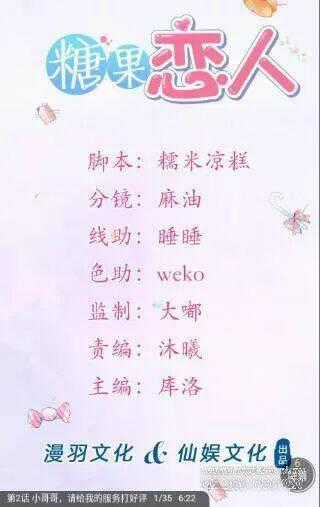 糖果恋人
脚本：糯米凉糕
分镜：麻油
线助：睡睡
色助：weko
监制：大嘟
责编：沐曦
主编：库洛
漫羽文化 & 仙娱文化 出品
第2话 小哥哥，请给我的服务打好评 1/35 6:22